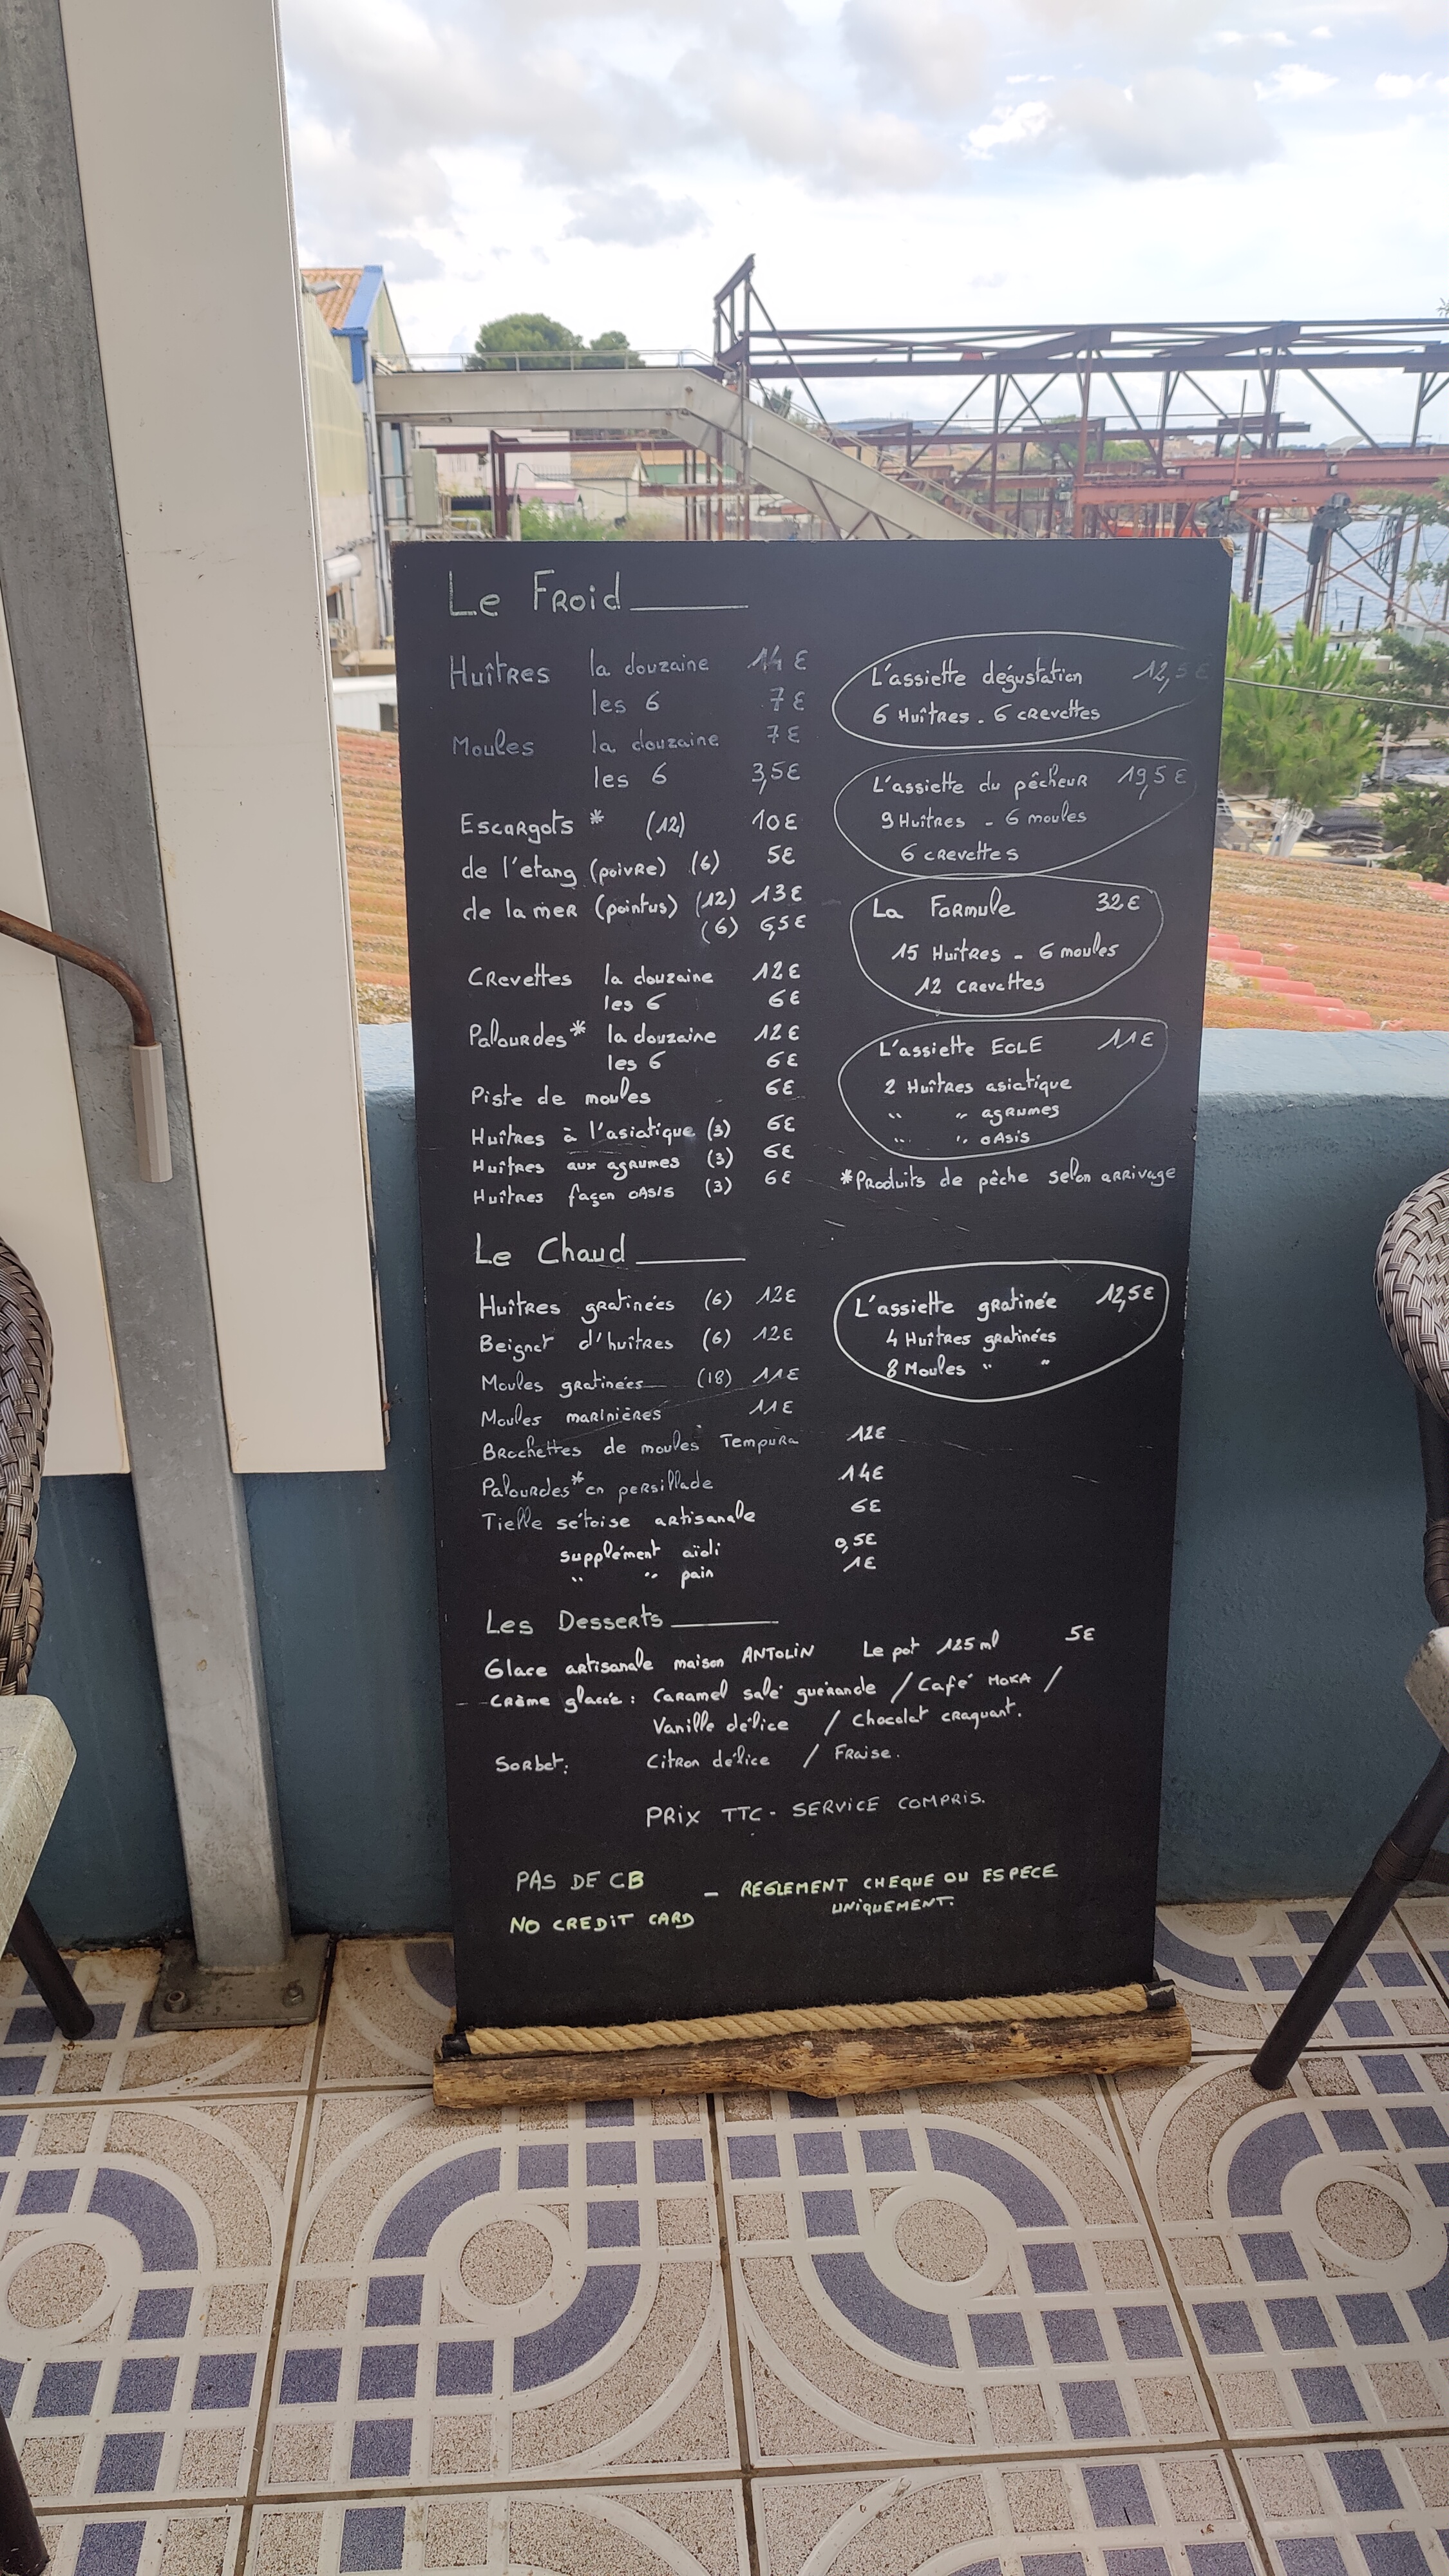 Le Froid
Huîtres la douzaine 14€
les 6 7€
Moules la douzaine 7€
les 6 3,5€
Escargots * (12) 10€
de l'etang (poivre) (6) 5€
de la mer (pointus) (12) 13€
(6) 6,5€
Crevettes la douzaine 12€
les 6 6€
Palourdes* la douzaine 12€
les 6 6€
Piste de moules 6€
Huîtres à l'asiatique (3) 6€
Huîtres aux agrumes (3) 6€
Huîtres façon OASIS (3) 6€
L'assiette dégustation 12,5€
6 Huîtres - 6 crevettes
L'assiette du pêcheur 19,5€
9 Huîtres - 6 moules
6 crevettes
La Formule 32€
15 Huîtres - 6 moules
12 Crevettes
L'assiette EOLE 11€
2 Huîtres asiatique
" " agrumes
" " OASIS
*Produits de pêche selon arrivage
Le Chaud
Huîtres gratinées (6) 12€
Beignet d'huîtres (6) 12€
Moules gratinées (18) 11€
Moules marinières 11€
Brochettes de moules Tempura 12€
Palourdes* en persillade 14€
Tielle sétoise artisanale 6€
supplément aïoli 0,5€
" " pain 1€
L'assiette gratinée 12,5€
4 Huîtres gratinées
8 Moules " "
Les Desserts
Glace artisanale maison ANTOLIN Le pot 125 ml 5€
Crème glacée : Caramel salé guérande / Café MOKA /
Vanille délice / Chocolat craquant.
Sorbet: Citron délice / Fraise.
PRIX TTC - SERVICE COMPRIS.
PAS DE CB
NO CREDIT CARD
- REGLEMENT CHEQUE OU ESPECE
UNIQUEMENT.